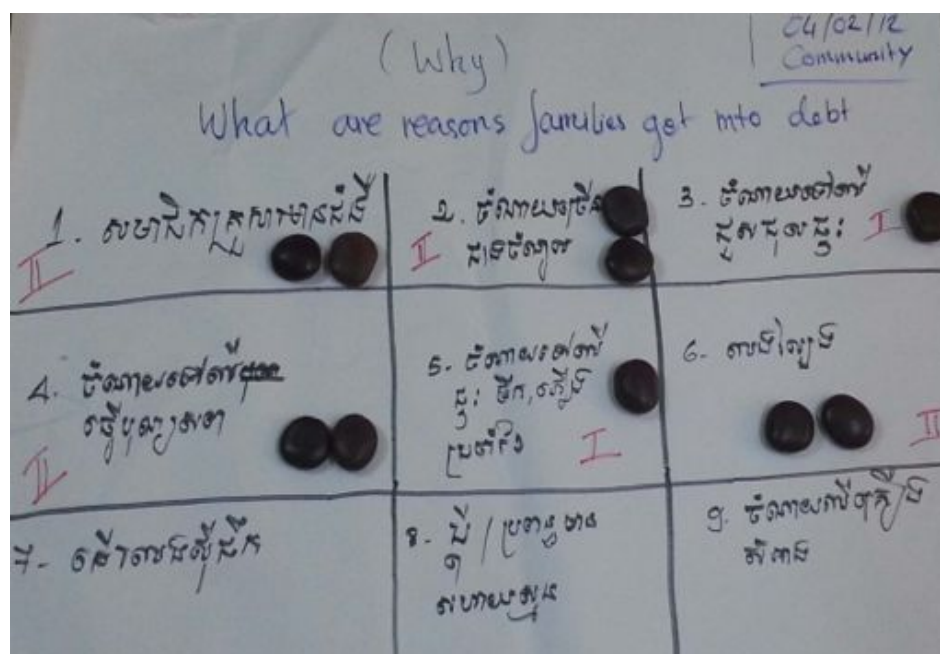 04/02/12
Community
(Why)
What are reasons families get into debt
1. សមាជិកគ្រួសារមានជំងឺ
II
2. ចំណាយច្រើន
ជាងចំណូល
II
3. ចំណាយទៅលើ
ជួសជុលផ្ទះ
I
4. ចំណាយទៅលើ
ធ្វើបុណ្យសទា
II
5. ចំណាយទៅលើ
ផ្ទះ ទឹក, ភ្លើង
ប្រចាំខែ
I
6. លេងល្បែង
II
7- ដើរលេងស៊ីផឹក
8- ប្ដី / ប្រពន្ធ មាន
សហាយស្មន់
9. ចំណាយលើគ្រឿង
សំអាង